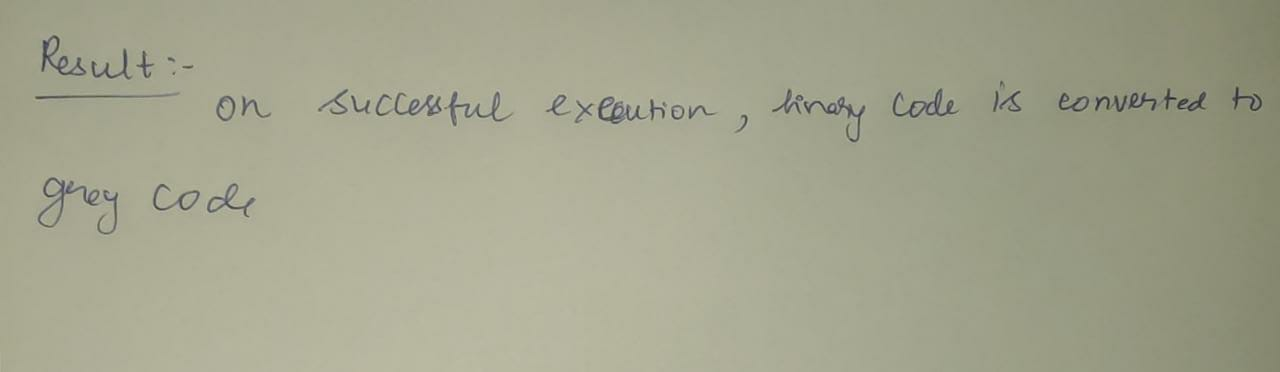 Result :-
on successful execution, binary code is converted to
grey code